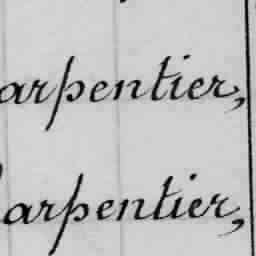 arpentier,
arpentier,